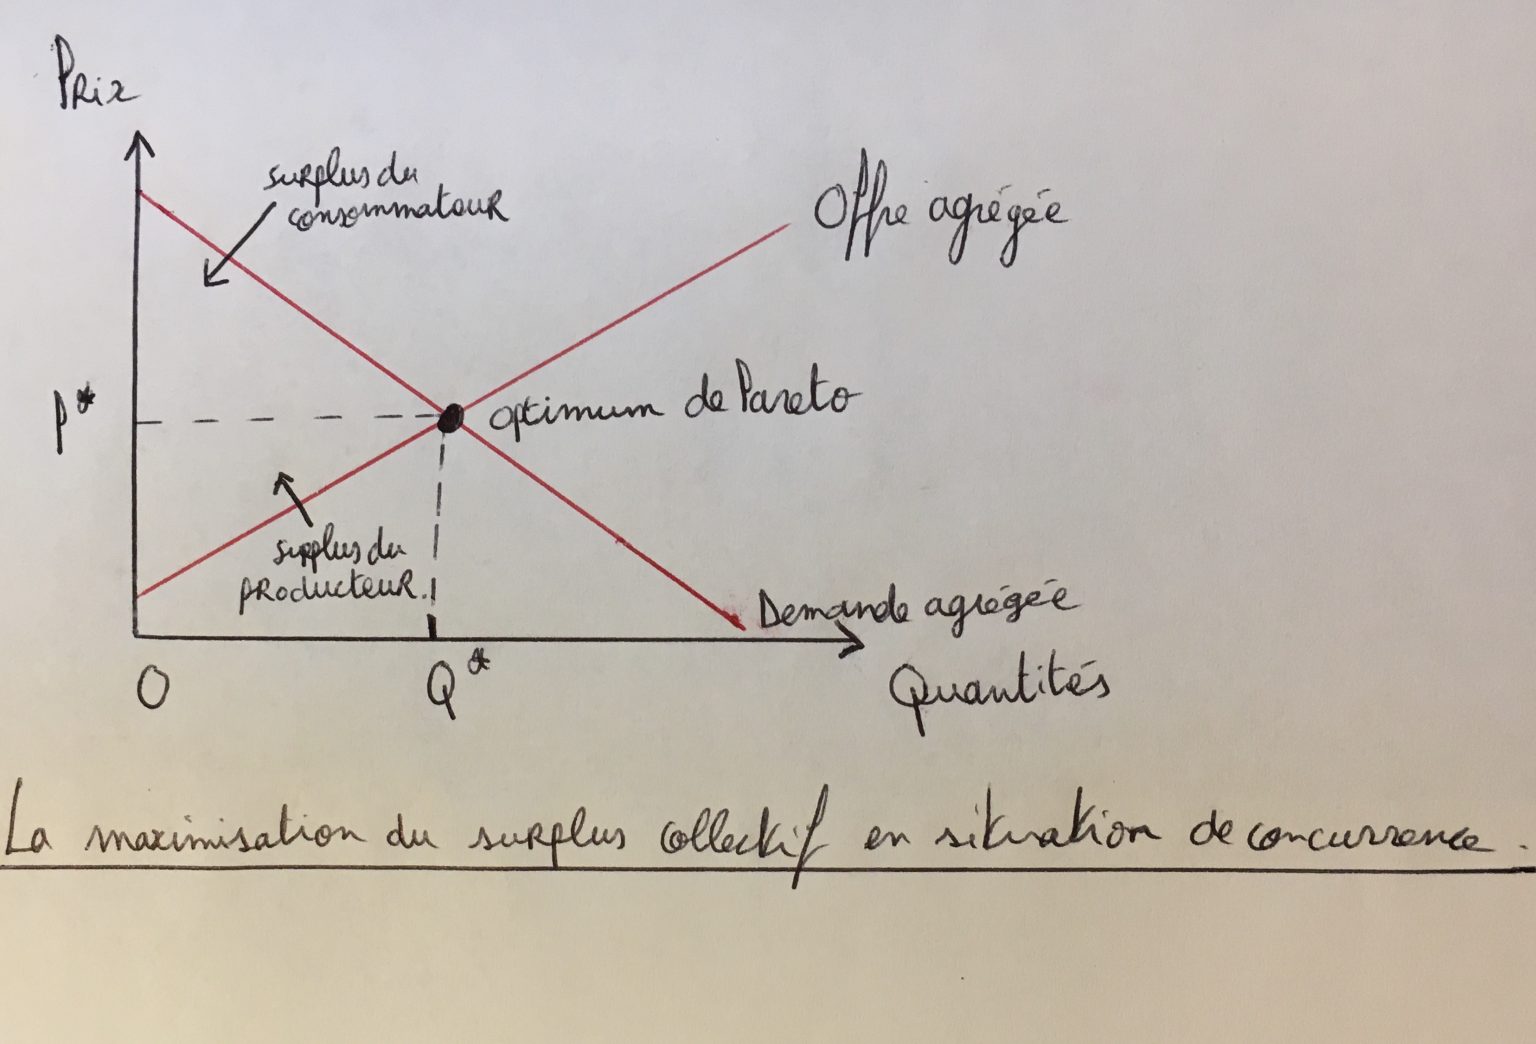 Prix
surplus du
consommateur
Offre agrégée
P*
optimum de Pareto
surplus du
producteur.
Demande agrégée
O
Q*
Quantités
La maximisation du surplus collectif en situation de concurrence.